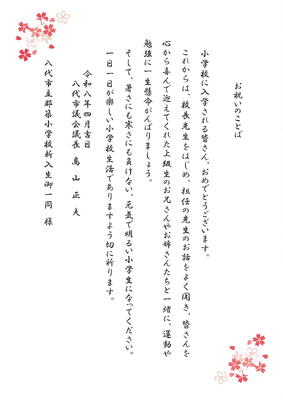 お祝いのことば
小学校に入学される皆さん、おめでとうございます。
これからは、校長先生をはじめ、担任の先生のお話をよく聞き、皆さんを
心から喜んで迎えてくれた上級生のお兄さんやお姉さんたちと一緒に、運動や
勉強に一生懸命がんばりましょう。
そして、暑さにも寒さにも負けない、元気で明るい小学生になってください。
一日一日が楽しい小学校生活でありますよう切に祈ります。
令和八年四月吉日
八代市議会議長 髙山正夫
八代市立郡築小学校新入生御一同 様